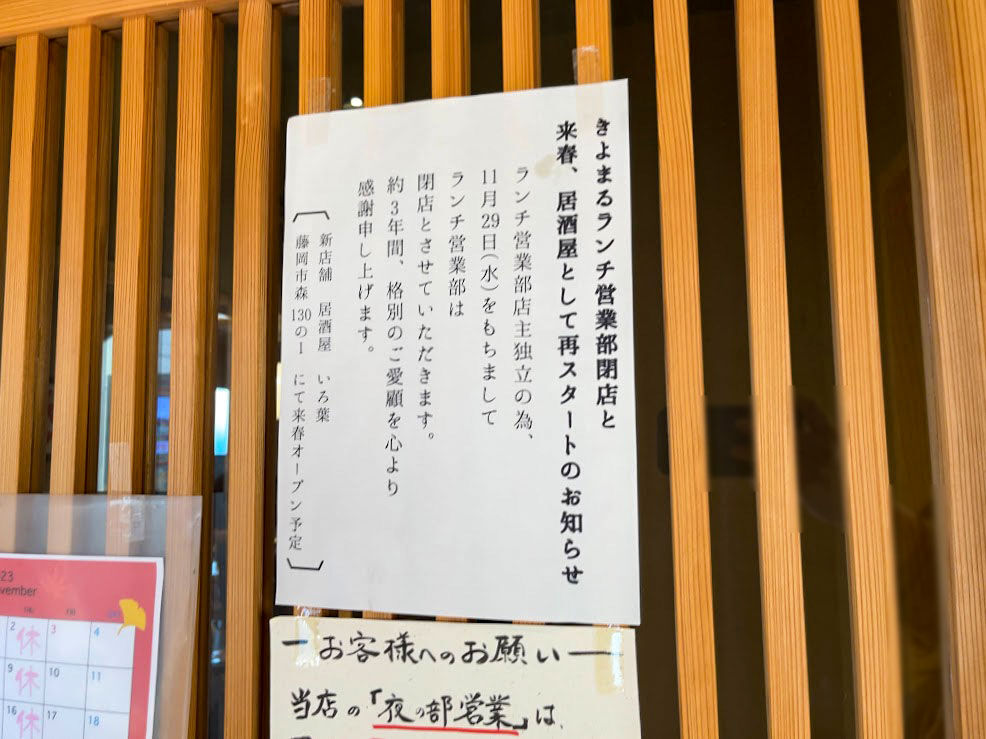 きよまるランチ営業部閉店と
来春、居酒屋として再スタートのお知らせ
ランチ営業部店主独立の為、
11月29日(水)をもちまして
ランチ営業部は
閉店とさせていただきます。
約3年間、格別のご愛顧を心より
感謝申し上げます。
新店舗　居酒屋　いろ葉
藤岡市森130の1　にて来春オープン予定
ーお客様へのお願いー
当店の「夜の部営業」は、
23
vember
2 休 3 4
9 休 10 11
16 休 17 18